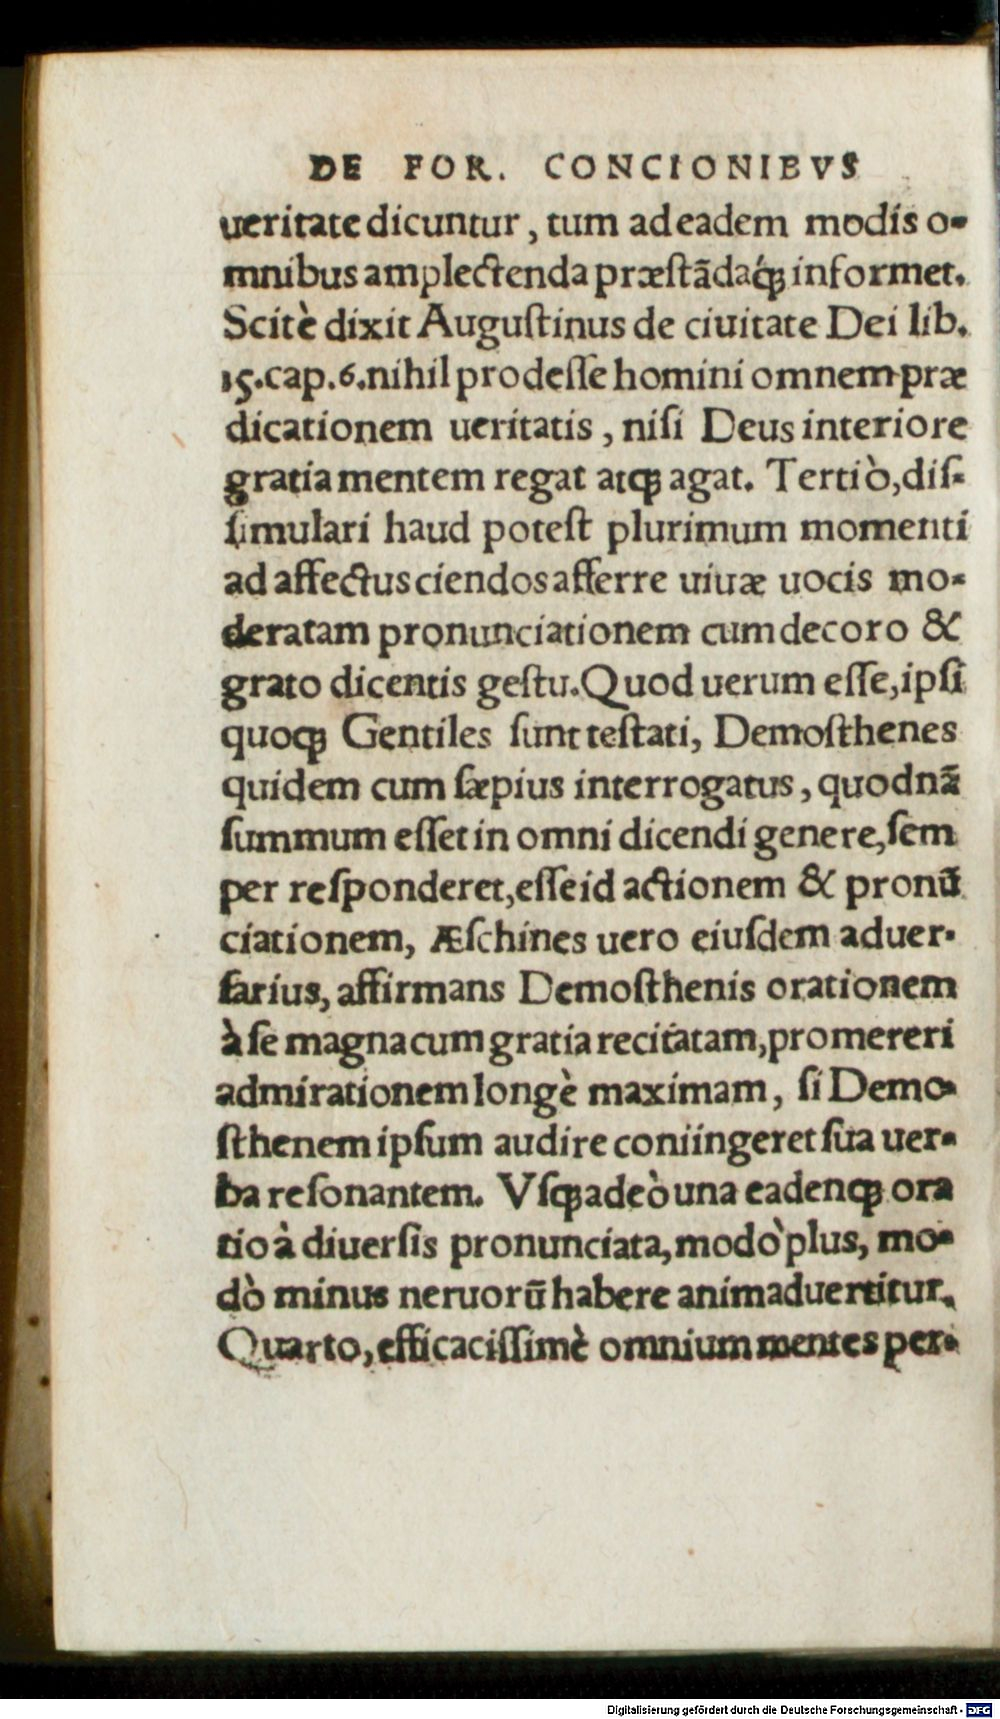 DE FOR. CONCIONIBVS
ueritate dicuntur, tum ad eadem modis o-
mnibus amplectenda præstādaq́ꝫ informet.
Scitè dixit Augustinus de ciuitate Dei lib.
15.cap.6.nihil prodesse homini omnem præ
dicationem ueritatis, nisi Deus interiore
gratia mentem regat atqꝫ agat. Tertiò, dis-
simulari haud potest plurimum momenti
ad affectus ciendos afferre uiuæ uocis mo-
deratam pronunciationem cum decoro &
grato dicentis gestu. Quod uerum esse, ipsi
quoqꝫ Gentiles sunt testati, Demosthenes
quidem cum sæpius interrogatus, quodnā
summum esset in omni dicendi genere, sem
per responderet, esse id actionem & pronū
ciationem, Æschines uero eiusdem aduer-
sarius, affirmans Demosthenis orationem
à se magna cum gratia recitatam, promereri
admirationem longè maximam, si Demo-
sthenem ipsum audire coniingeret sua uer-
ba resonantem. Vsqꝫ adeò una eadenqꝫ ora
tio à diuersis pronunciata, modò plus, mo-
dò minus neruorū habere animaduertitur.
Quarto, efficacissimè omnium mentes per-
Digitalisierung gefördert durch die Deutsche Forschungsgemeinschaft - DFG